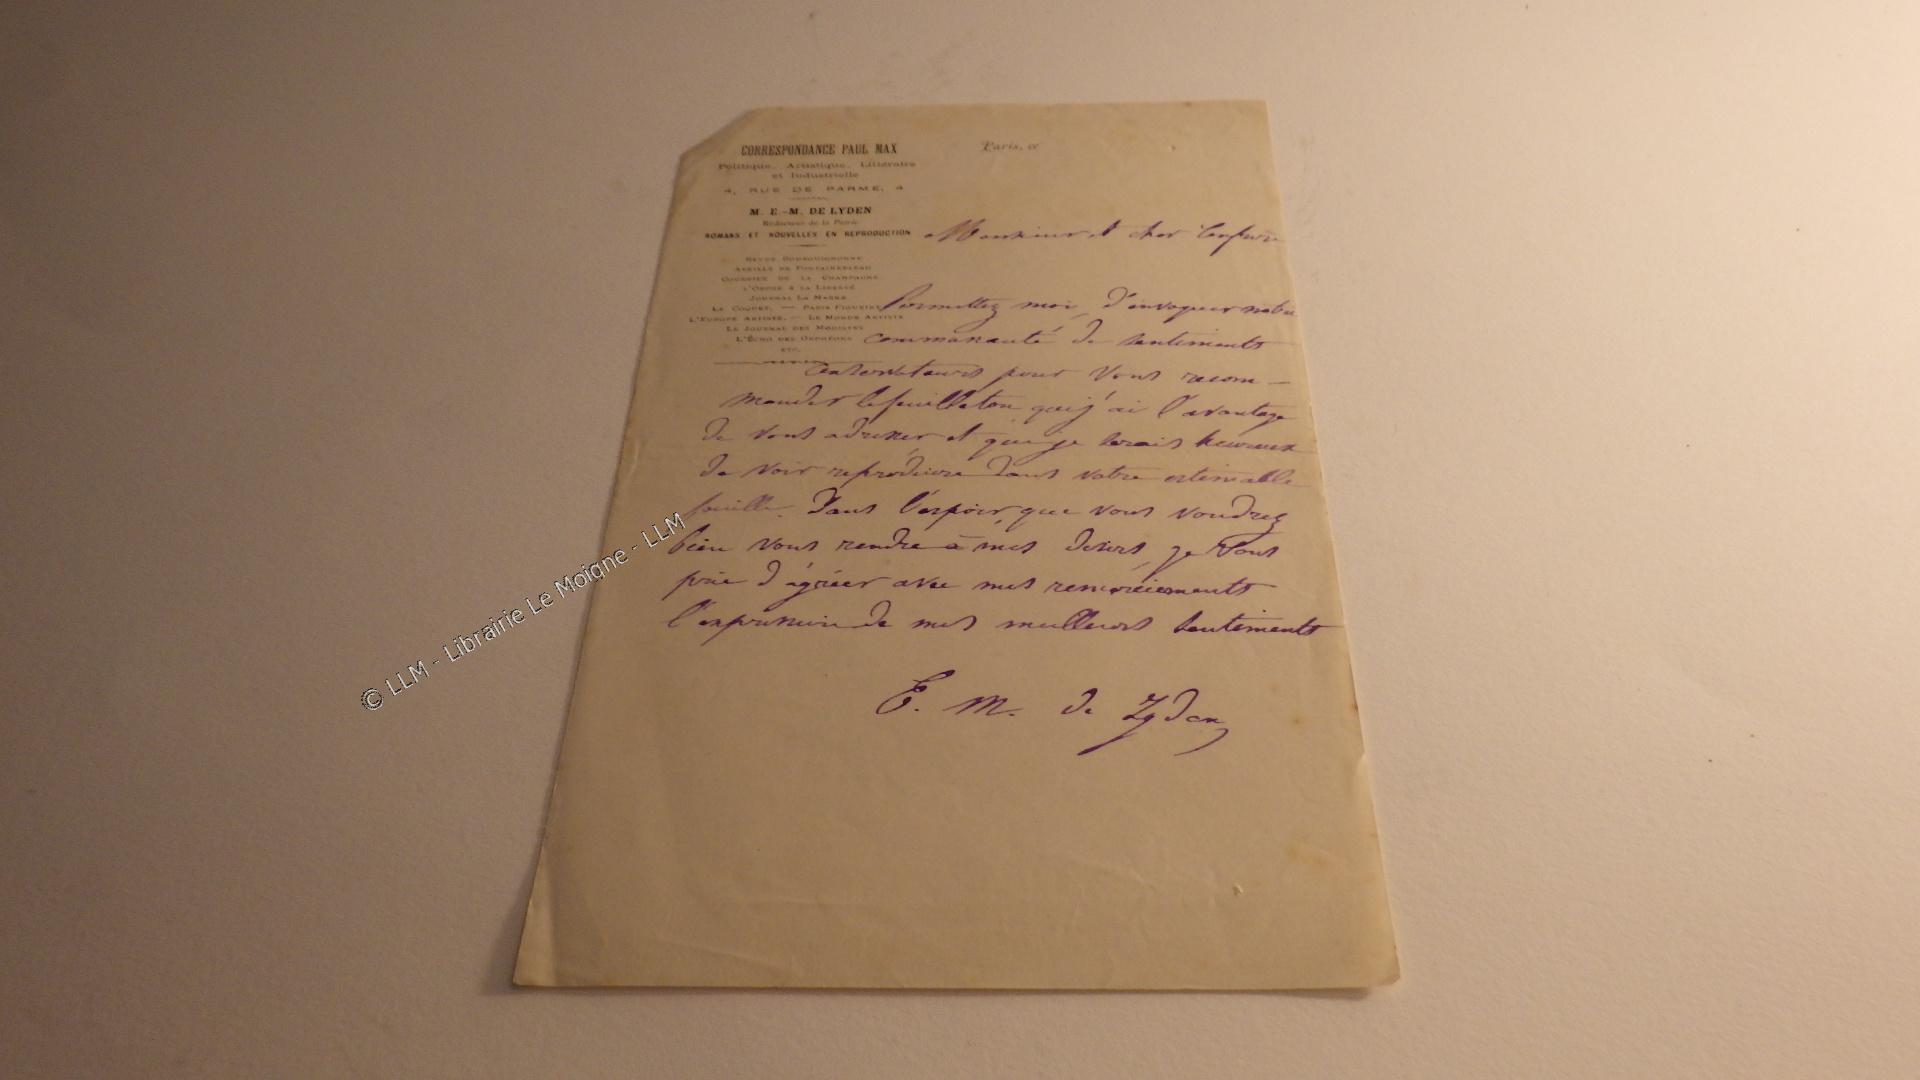 CORRESPONDANCE PAUL MAX
Politique, Artistique, Littéraire
et Industrielle
4, RUE DE PARME, 4
M. E.-M. DE LYDEN
Rédacteur de la Patrie
ROMANS ET NOUVELLES EN REPRODUCTION
REVUE BOURGUIGNONNE
ABEILLE DE FONTAINEBLEAU
COURRIER DE LA CHAMPAGNE
L'ORDRE & LA LIBERTÉ
JOURNAL LA MARNE
LE COQUET, — PARIS FIGURINE
L'EUROPE ARTISTE, — LE MONDE ARTISTE
LE JOURNAL DES MODISTES
L'ÉCHO DES ORPHÉONS
ETC.
Paris, ce
Monsieur et cher Confrère
Permettez moi, d'invoquer notre
communauté de sentiments
conservateurs pour vous recom-
mander le feuilleton que j'ai l'avantage
de vous adresser et que je serais heureux
de voir reproduire dans votre estimable
feuille. Dans l'espoir, que vous voudrez
bien vous rendre à mes désirs, je vous
prie d'agréer avec mes remerciements
l'expression de mes meilleurs sentiments
E. M. de Lyden
© LLM - Librairie Le Moigne - LLM